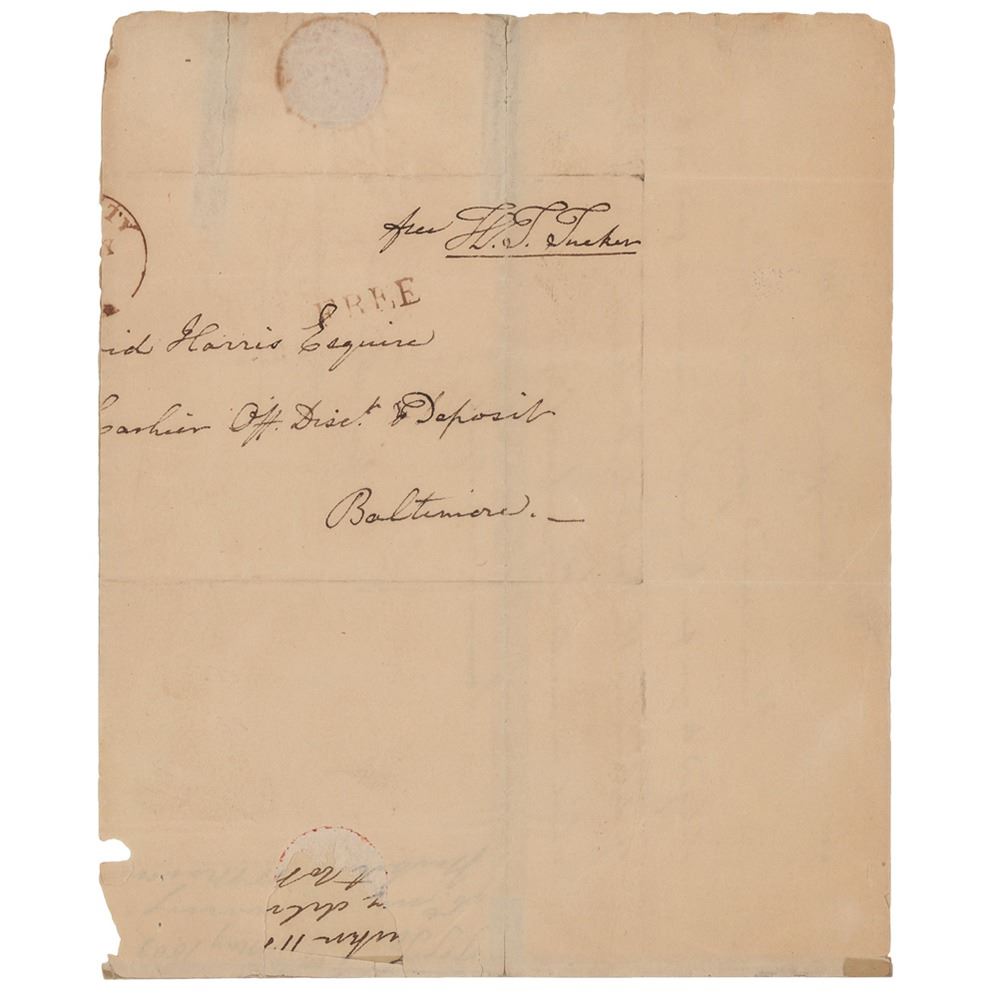 TY
free H. T. Tucker
FREE
id Harris Esquire
Cashier Off. Disct. & Deposit
Baltimore. —